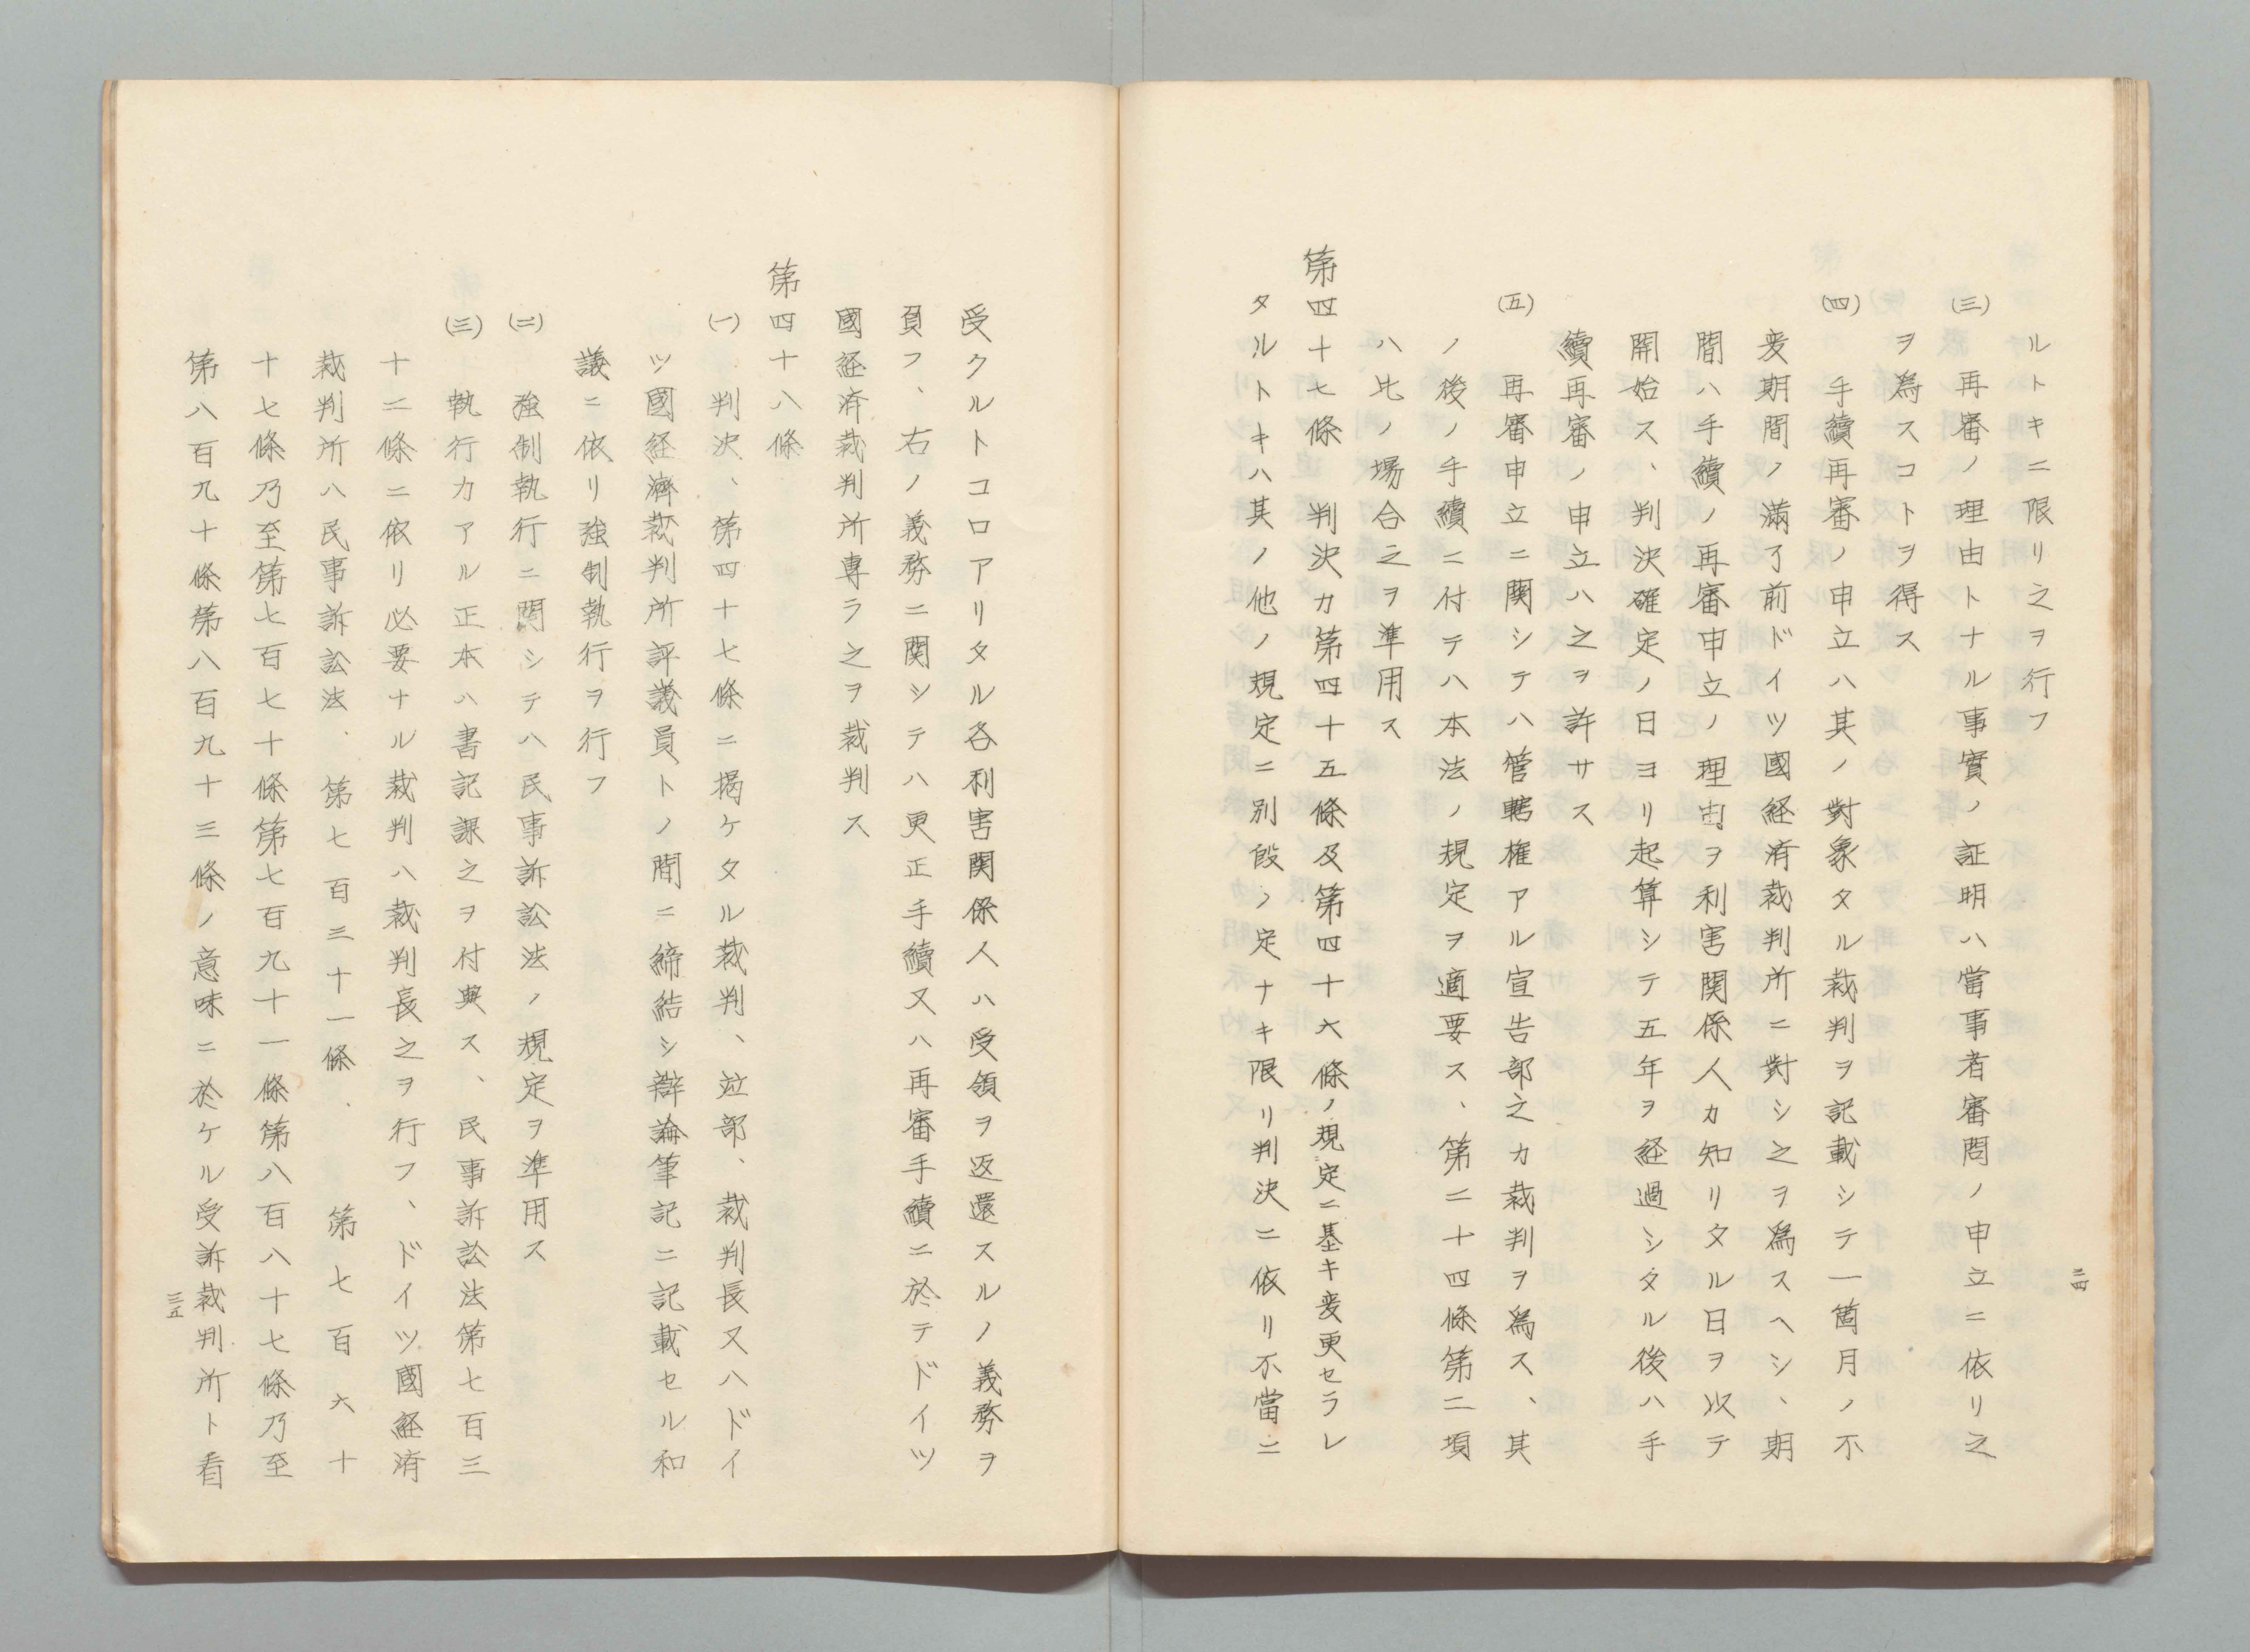 ルトキニ限リ之ヲ行フ
㈢ 再審ノ理由トナル事實ノ証明ハ當事者審問ノ申立ニ依リ之
ヲ為スコトヲ得ス
㈣ 手續再審ノ申立ハ其ノ對象タル裁判ヲ記載シテ一箇月ノ不
変期間ノ滿了前ドイツ國経済裁判所ニ對シ之ヲ爲スヘシ、期
間ハ手續ノ再審申立ノ理由ヲ利害関係人カ知リタル日ヲ以テ
開始ス、判決確定ノ日ヨリ起算シテ五年ヲ経過シタル後ハ手
續再審ノ申立ハ之ヲ許サス
㈤ 再審申立ニ関シテハ管轄権アル宣告部之カ裁判ヲ爲ス、其
ノ後ノ手續ニ付テハ本法ノ規定ヲ適要ス、第二十四條第二項
ハ此ノ場合之ヲ準用ス
第四十七條 判決カ第四十五條及第四十六條ノ規定ニ基キ変更セラレ
タルトキハ其ノ他ノ規定ニ別段ノ定ナキ限リ判決ニ依リ不當ニ
三四
受クルトコロアリタル各利害関係人ハ受領ヲ返還スルノ義務ヲ
負フ、右ノ義務ニ関シテハ更正手續又ハ再審手續ニ於テドイツ
國経済裁判所專ラ之ヲ裁判ス
第四十八條
㈠ 判決、第四十七條ニ掲ケタル裁判、竝部、裁判長又ハドイ
ツ國経濟裁判所評議員トノ間ニ締結シ辯論筆記ニ記載セル和
議ニ依リ強制執行ヲ行フ
㈡ 強制執行ニ関シテハ民事訴訟法ノ規定ヲ準用ス
㈢ 執行カアル正本ハ書記課之ヲ付與ス、民事訴訟法第七百三
十二條ニ依リ必要ナル裁判ハ裁判長之ヲ行フ、ドイツ國経済
裁判所ハ民事訴訟法、第七百三十一條、第七百六十
十七條乃至第七百七十條第七百九十一條第八百八十七條乃至
第八百九十條第八百九十三條ノ意味ニ於ケル受訴裁判所ト看
三五